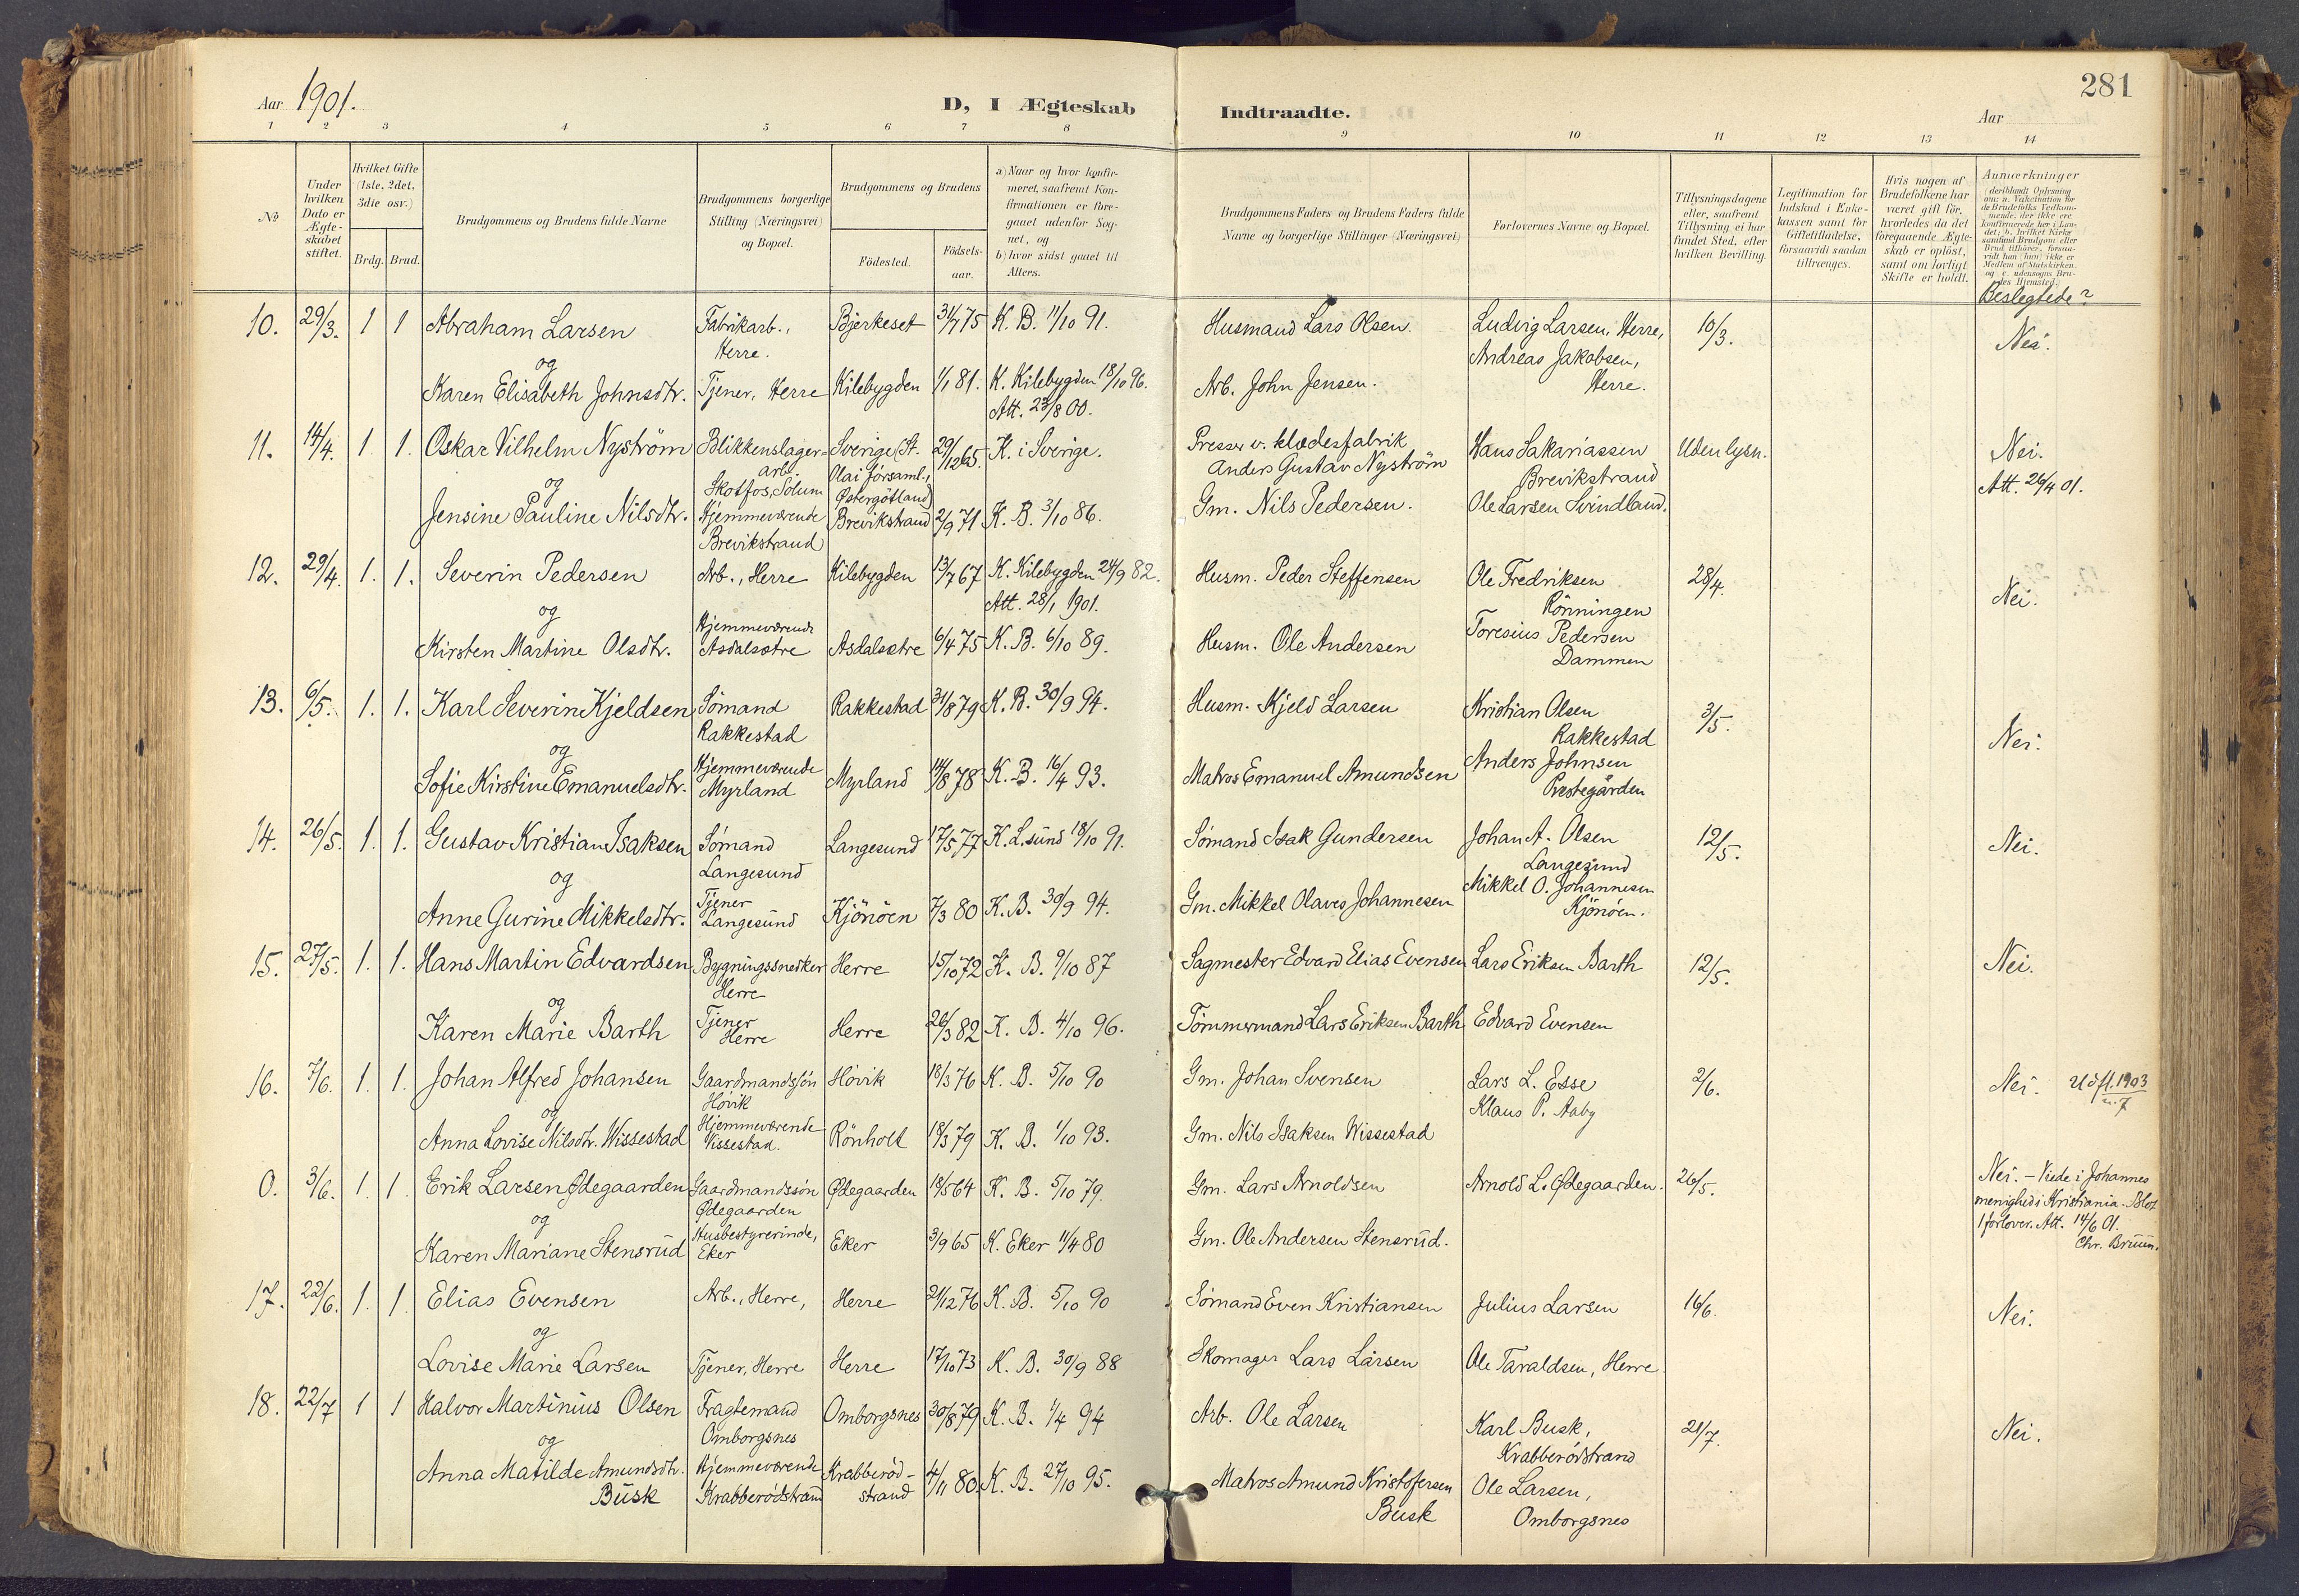 281
Aar 1901.
D, I Ægteskab Indtraadte.
Aar
1 2 3 4 5 6 7 8 9 10 11 12 13 14
№
Under hvilken Dato er Ægteskabet stiftet.
Hvilket Gifte (1ste, 2det, 3die osv.)
Brdg. Brud.
Brudgommens og Brudens fulde Navne
Brudgommens borgerlige Stilling (Næringsvei) og Bopæl.
Brudgommens og Brudens
Födested.
Födsels-aar.
a) Naar og hvor konfirmeret, saafremt Konfirmationen er foregaaet udenfor Sognet, og
b) hvor sidst gaaet til Alters.
Brudgommens Faders og Brudens Faders fulde Navne og borgerlige Stillinger (Næringsvei)
Forlovernes Navne og Bopæl.
Tillysningsdagene eller, saafremt Tillysning ei har fundet Sted, efter hvilken Bevilling.
Legitimation for Indskud i Enkekassen samt for Giftetilladelse, forsaavidt saadan tiltrænges.
Hvis nogen af Brudefolkene har været gift för, hvorledes da det foregaaende Ægteskab er oplöst, samt om lovligt Skifte er holdt.
Anmærkninger
Beslegtede?
10. 29/3. 1 1 Abraham Larsen Fabrikarb., Herre. Bjerkeset 31/7 75 K. B. 11/10 91. Husmand Lars Olsen. Ludvig Larsen, Herre, 10/3. Nei.
og
Andreas Jakobsen, Herre.
Karen Elisabeth Johnsdtr. Tjener, Herre Kilebygden 1/1 81. K. Kilebygden 18/10 96. Att. 23/8 00. Arb. John Jensen.
11. 14/4. 1. 1. Oskar Vilhelm Nyström Blikkenslagerarb. Skotfos, Solum Sverige (St. Olai församl., Østergötland) 29/12 65. K. i Sverige. Presser v. klædesfabrik Anders Gustav Nyström Hans Sakariassen Brevikstrand Uden lysn. Nei.
og
Att. 26/4 01.
Jensine Pauline Nilsdtr. Hjemmeværende Brevikstrand Brevikstrand 2/9 71 K. B. 3/10 86. Gm. Nils Pedersen. Ole Larsen Svindland.
12. 29/4. 1. 1. Severin Pedersen Arb., Herre Kilebygden 13/7 67 K. Kilebygden 24/9 82. Att. 28/1 1901. Husm. Peder Steffensen Ole Fredriksen Rönningen 28/4. Nei.
og
Kirsten Martine Olsdtr. Hjemmeværende Asdalsætre Asdalsætre 6/4 75 K. B. 6/10 89. Husm. Ole Andersen Toresius Pedersen Dammen
13. 6/5. 1. 1. Karl Severin Kjeldsen Sömand Rakkestad Rakkestad 31/8 79 K. B. 30/9 94. Husm. Kjeld Larsen Kristian Olsen Rakkestad 3/5. Nei.
og
Sofie Kirstine Emanuelsdtr. Hjemmeværende Myrland Myrland 14/8 78 K. B. 16/4 93. Matros Emanuel Amundsen Anders Johnsen Prestegården
14. 26/5. 1. 1. Gustav Kristian Isaksen Sömand Langesund Langesund 17/5 77 K. L.sund 18/10 91. Sömand Isak Gundersen Johan A. Olsen Langesund 12/5. Nei.
og
Anne Gurine Mikkelsdtr. Tjener Langesund Kjönöen 7/3 80 K. B. 30/9 94. Gm. Mikkel Olaves Johannesen Mikkel O. Johannesen Kjönöen.
15. 27/5. 1. 1. Hans Martin Edvardsen Bygningssnedker Herre Herre 15/10 72 K. B. 9/10 87 Sagmester Edvard Elias Evensen Lars Eriksen Barth 12/5. Nei.
og
Karen Marie Barth Tjener Herre Herre 26/3 82 K. B. 4/10 96. Tömmermand Lars Eriksen Barth Edvard Evensen
16. 7/6. 1. 1. Johan Alfred Johansen Gaardmandssön Hövik Hövik 18/3 76 K. B. 5/10 90 Gm. Johan Svensen Lars L. Esse 2/6. Nei. Udfl. 1903 n. 7
og
Klaus P. Aaby
Anna Lovise Nilsdtr. Wissestad Hjemmeværende Wissestad. Rönholt 18/3 79 K. B. 1/10 93. Gm. Nils Isaksen Wissestad
0. 3/6. 1. 1 Erik Larsen Ødegaarden Gaardmandssön Ødegaarden Ødegaarden 18/5 64 K. B. 5/10 79. Gm. Lars Arnoldsen Arnold L. Ødegaarden. 26/5. Nei. - Viede i Johannes menighed i Kristiania. Blot 1 forlover. Att. 14/6 01. Chr. Bruun.
og
Karen Mariane Stensrud Husbestyrerinde, Eker Eker 3/9 65 K. Eker 11/4 80 Gm. Ole Andersen Stensrud.
17. 22/6. 1. 1 Elias Evensen Arb., Herre, Herre 21/12 76 K. B. 5/10 90 Sömand Even Kristiansen Julius Larsen 16/6. Nei.
og
Lovise Marie Larsen Tjener, Herre Herre 17/10 73 K. B. 30/9 88 Skomager Lars Larsen Ole Taraldsen, Herre.
18. 22/7 1 1 Halvor Martinius Olsen Fragtemand Omborgsnes Omborgsnes 30/8 79 K. B. 1/4 94 Arb. Ole Larsen Karl Busk, Krabberödstrand 21/7. Nei.
og
Anna Matilde Amundsdtr. Busk Hjemmeværende Krabberödstrand Krabberöd-strand 4/11 80. K. B. 27/10 95. Matros Amund Kristofersen Busk Ole Larsen, Omborgsnes